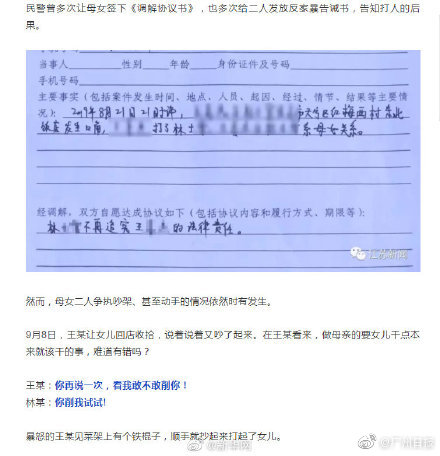 民警曾多次让母女签下《调解协议书》，也多次给二人发放反家暴告诫书，告知打人的后
果。
当事人 性别 年龄 身份证件及号码
手机号码
主要事实（包括案件发生时间、地点、人员、起因、经过、情节、结果等主要情
况）：2019年8月21日21时许，
发生口角， 打了林 系母女关系。
经调解，双方自愿达成协议如下（包括协议内容和履行方式、期限等）：
林 不再追究王 的法律责任。
江苏新闻
然而，母女二人争执吵架、甚至动手的情况依然时有发生。
9月8日，王某让女儿回店收拾，说着说着又吵了起来。在王某看来，做母亲的要女儿干点本
来就该干的事，难道有错吗？
王某：你再说一次，看我敢不敢削你！
林某：你削我试试!
暴怒的王某见菜架上有个铁棍子，顺手就抄起来打起了女儿。
@新华网
@广州日报